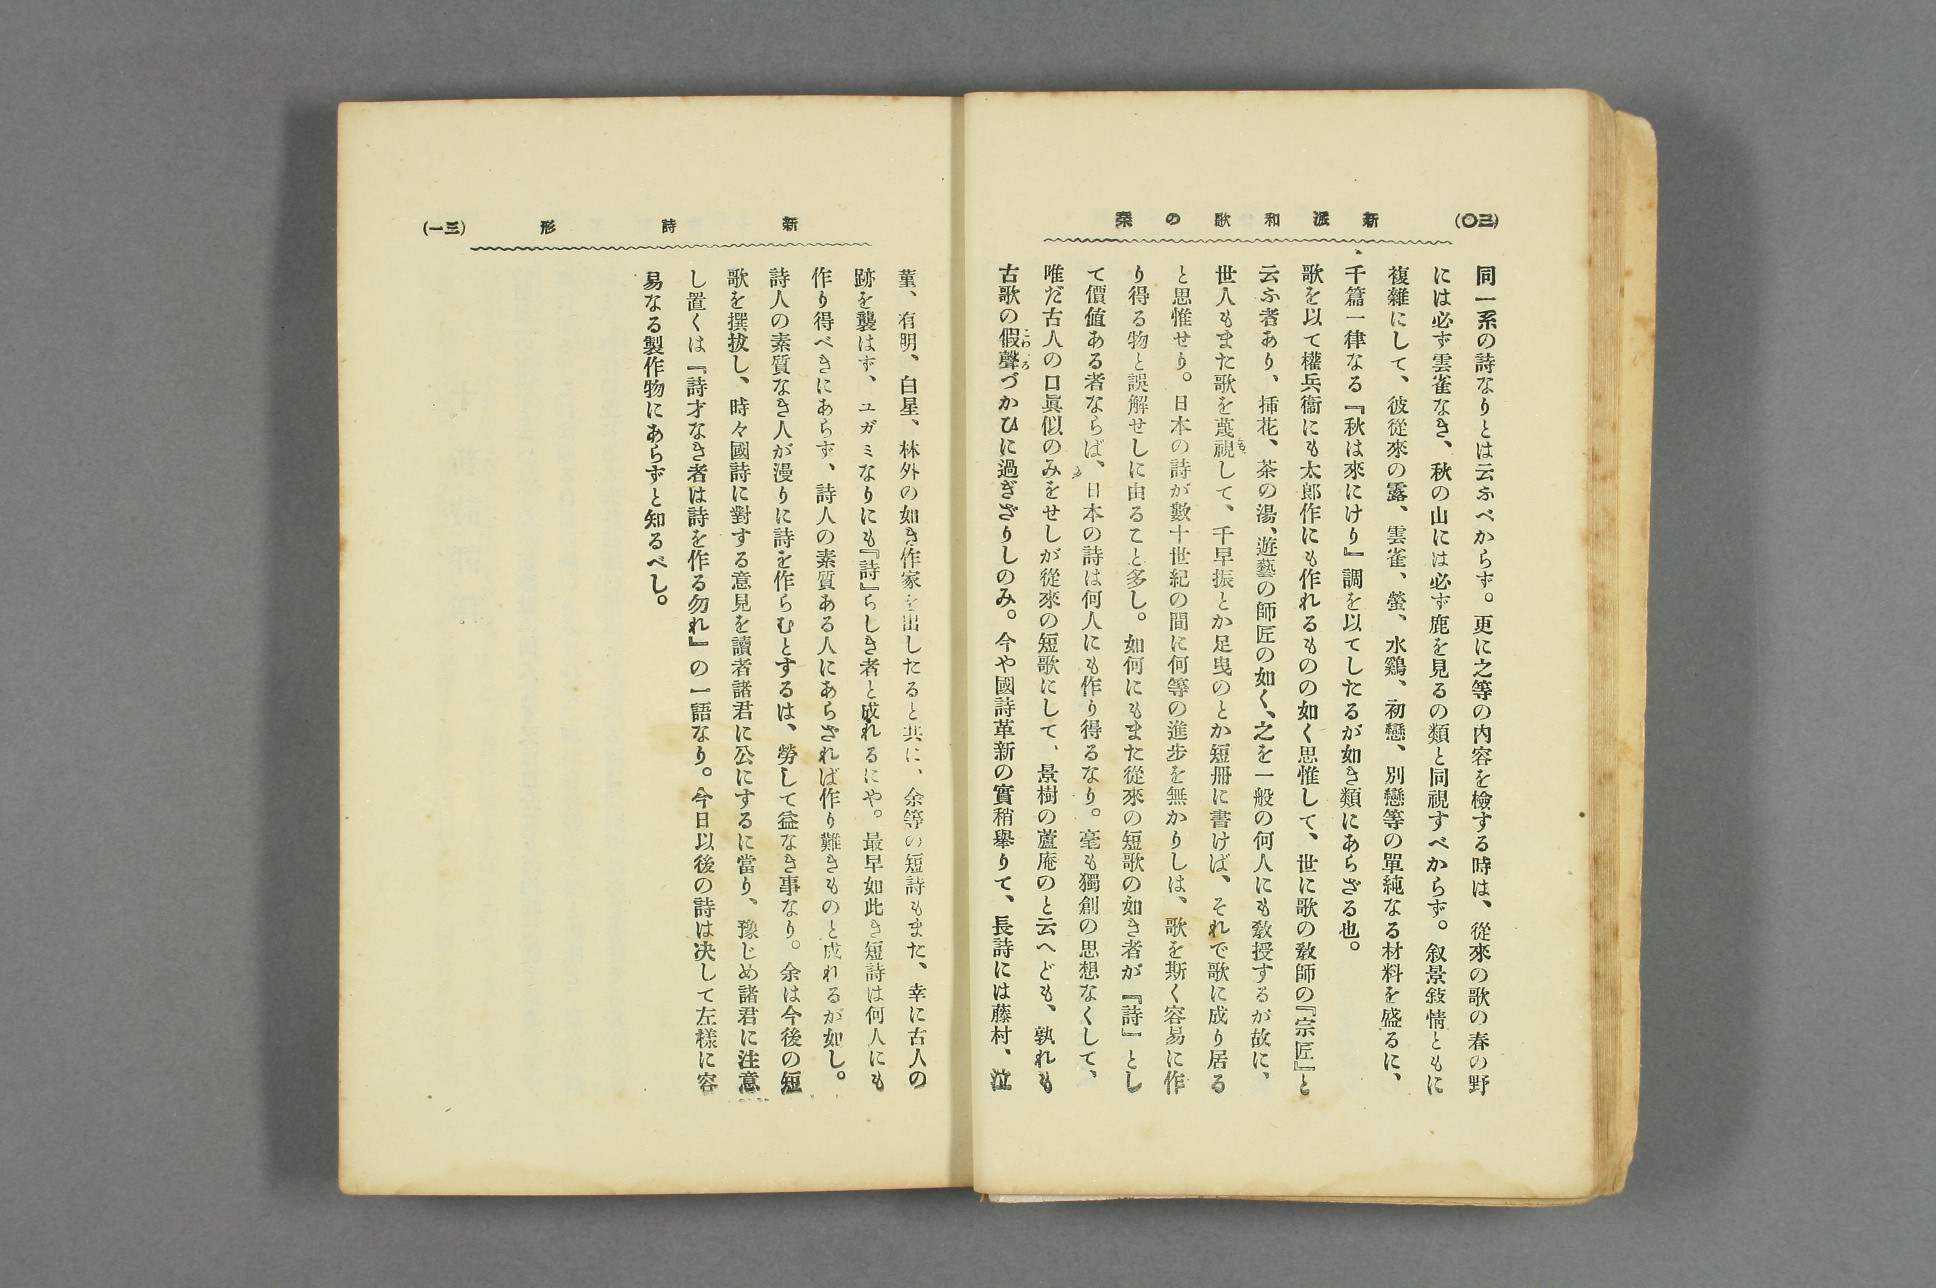 (三〇)
新派和歌の栞
同一系の詩なりとは云ふべからず。更に之等の内容を檢する時は、從來の歌の春の野
には必ず雲雀なき、秋の山には必ず鹿を見るの類と同視すべからず。叙景敍情ともに
複雜にして、彼從來の露、雲雀、螢、水鷄、初戀、別戀等の單純なる材料を盛るに、
千篇一律なる『秋は來にけり』調を以てしたるが如き類にあらざる也。
歌を以て權兵衞にも太郎作にも作れるものの如く思惟して、世に歌の敎師の『宗匠』と
云ふ者あり、揷花、茶の湯、遊藝の師匠の如く、之を一般の何人にも敎授するが故に、
世人もまた歌を蔑視して、千早振とか足曳のとか短冊に書けば、それで歌に成り居る
と思惟せり。日本の詩が數十世紀の間に何等の進步を無かりしは、歌を斯く容易に作
り得る物と誤解せしに由ること多し。如何にもまた從來の短歌の如き者が『詩』とし
て價値ある者ならば、日本の詩は何人にも作り得るなり。毫も獨創の思想なくして、
唯だ古人の口眞似のみをせしが從來の短歌にして、景樹の蘆庵のと云へども、孰れも
古歌の假聲づかひに過ぎざりしのみ。今や國詩革新の實稍擧りて、長詩には藤村、泣
新詩形
(三一)
菫、有明、白星、林外の如き作家を出したると共に、余等の短詩もまた、幸に古人の
跡を襲はず、ユガミなりにも『詩』らしき者と成れるにや。最早如此き短詩は何人にも
作り得べきにあらず、詩人の素質ある人にあらざれば作り難きものと成れるが如し。
詩人の素質なき人が漫りに詩を作らむとするは、勞して益なき事なり。余は今後の短
歌を撰拔し、時々國詩に對する意見を讀者諸君に公にするに當り、豫じめ諸君に注意
し置くは『詩才なき者は詩を作る勿れ』の一語なり。今日以後の詩は决して左樣に容
易なる製作物にあらずと知るべし。